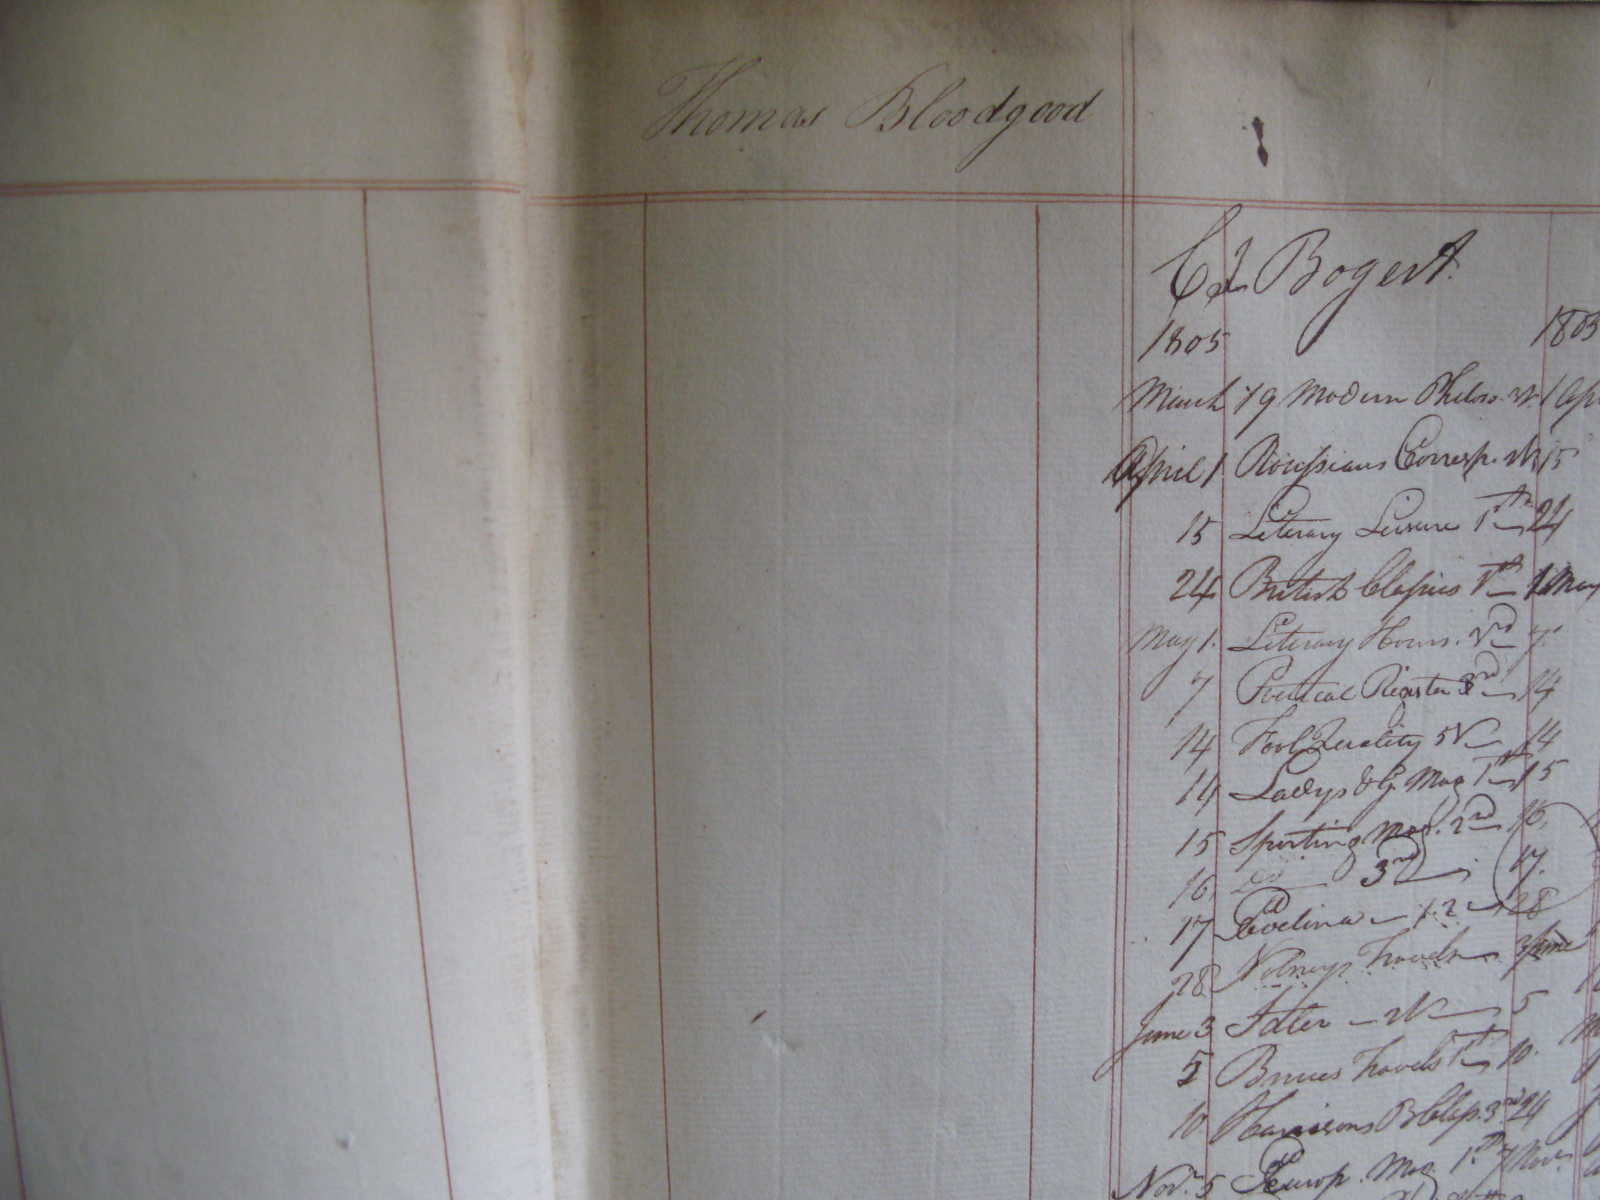 Thomas Bloodgood
Bogert.
1805 1805
March 19 Modern Philos. 1 Apr
April 1 Corresp. 15
15 Literary Leisure 1st 24
24 British Classics 1st 1 May
May 1. Literary Hours. 2nd 7
7 Poetical Register 3rd 14
14 Fool Quality 5V 14
14 Ladys & G. Mag 1st 15
15 Sporting Mag. 2nd 16,
16, do 3rd 17.
17 Evelina 1. 2 28
28 Volneys Travels 3 June
June 3 Idler 2V 5
5 Bruces Travels 1st 10.
10. Harrisons B Class. 3rd 24
Nov. 5 Europ. Mag. 1st 7 Nov.